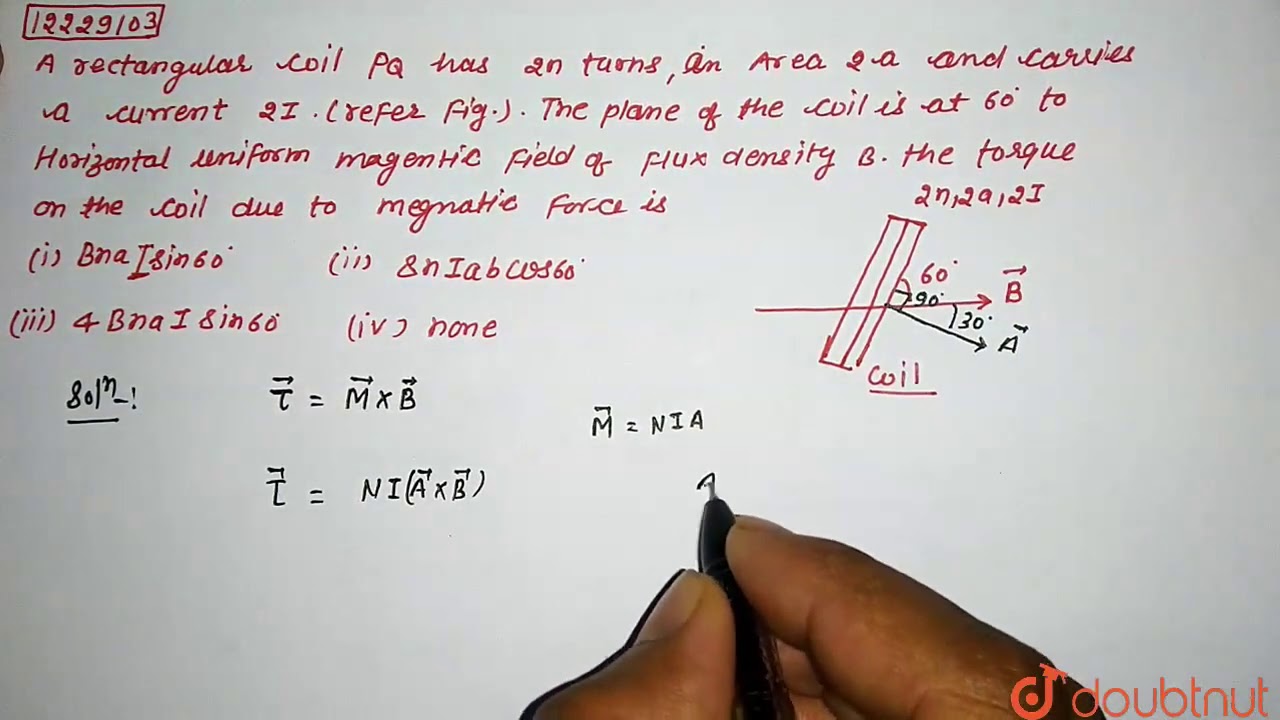 12229103
A rectangular coil PQ has 2n turns, an Area 2a and carries
a current 2I. (refer Fig.). The plane of the coil is at 60° to
Horizontal uniform magentic field of flux density B. the torque
on the coil due to megnatic force is
(i) BnaIsin60°
(ii) 8nIab cos60°
(iii) 4 BnaI sin60
(iv) none
2n,2a,2I
60°
90°
B⃗
30°
A⃗
coil
Solⁿ-:
τ⃗ = M⃗ × B⃗
M⃗ = NIA
τ⃗ = NI(A⃗ × B⃗)
A
doubtnut